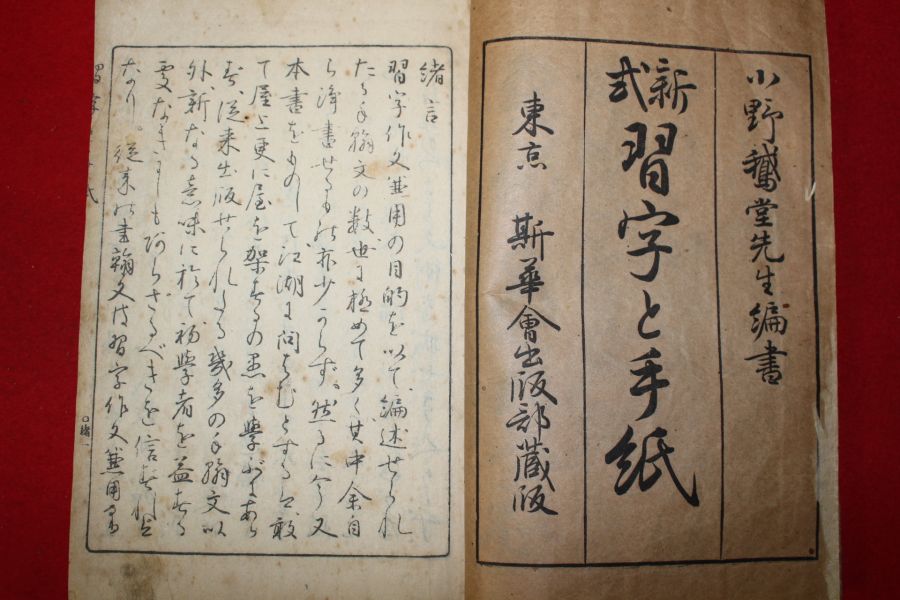 小野鵞堂先生編書
新式 習字と手紙
東京 斯華會出版部蔵版
緒言
習字作文兼用の目的を以て、編述せられ
たる手翰文の数世に極めて多く其中余自
ら浄書せるもの亦少からず。然るに今又
本書をものして江湖に問はむとするは敢
て屋上更に屋を架するの愚を學ぶにあら
ず、従来出版せられたる幾多の手翰文以
外、新なる意味に於て初學者を益する
要なきにもあらざるべきを信ずれば
なり。従来の書翰文は習字作文兼用